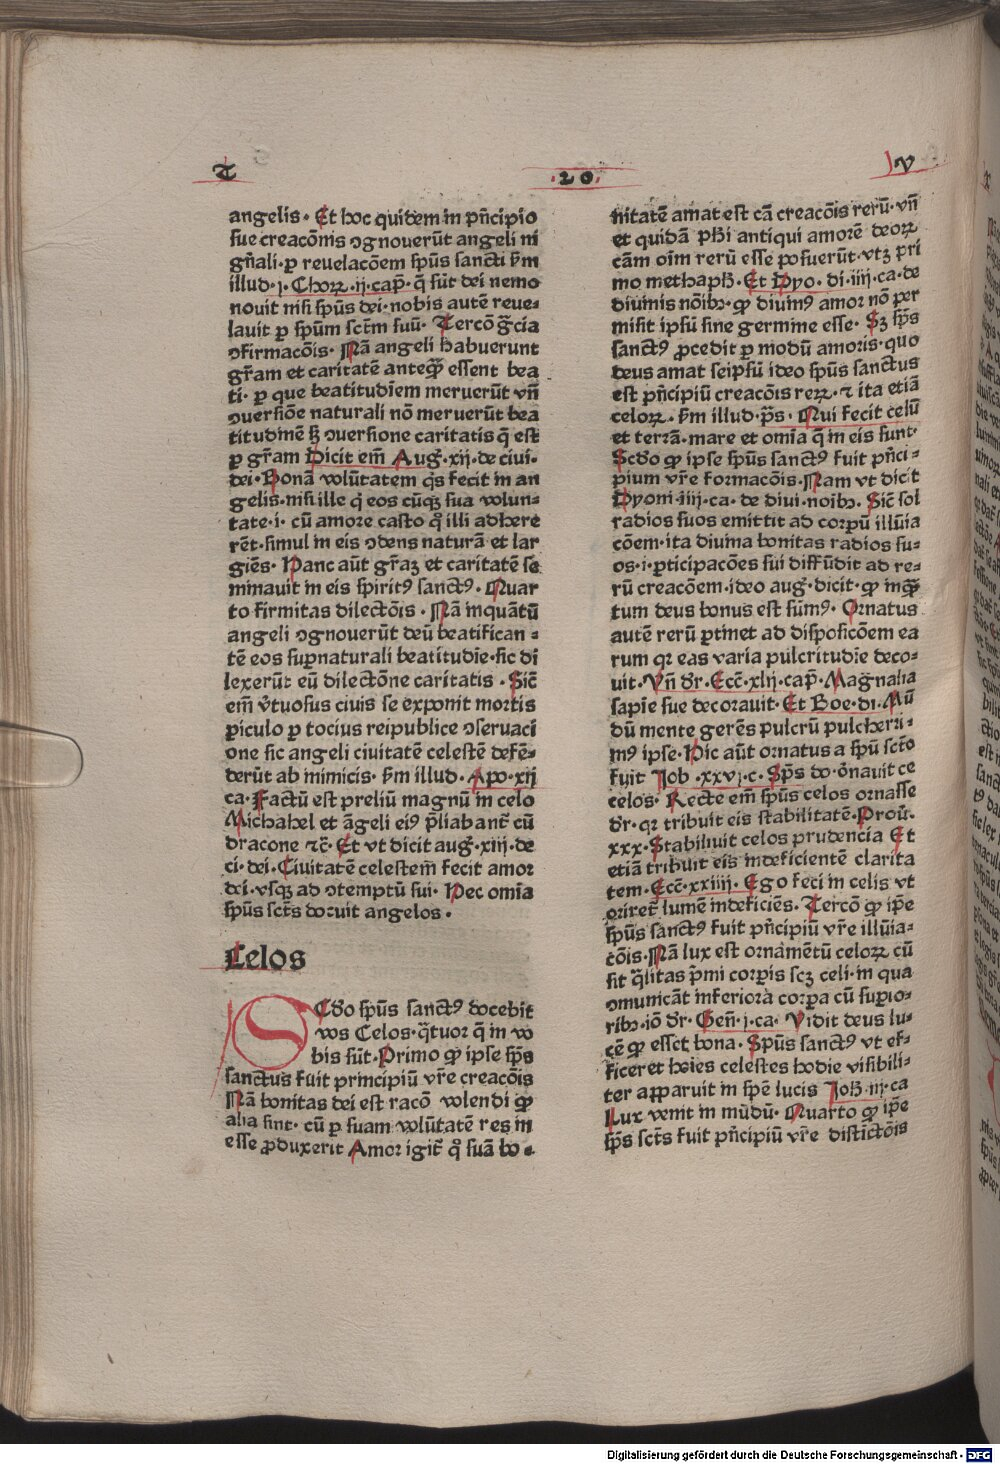 T
·20·
V
angelis· Et hoc quidem in pn̄cipio
sue creacōnis ꝯgnouerūt angeli ni
gn̄ali· ꝑ reuelacōem sp̄us sancti ẜm
illud·j· Choꝝ ·ij·cap̄· q̄ sūt dei nemo
nouit nisi sp̄us dei· nobis autē reue⸗
lauit ꝑ sp̄um sctm̄ suū· Tercō gr̄cia
ꝯfirmacōis· Nā angeli habuerunt
gr̄am et caritatē anteq̄ꝫ essent bea
ti· ꝑ que beatitudiem meruerūt vn̄
ꝯuersiōe naturali nō meruerūt bea
titudinē sꝫ ꝯuersione caritatis q̄ est
ꝑ gr̄am Dicit em̄ Auḡ·xij·de ciui·
dei· Bonā volūtatem qs̄ fecit in an
gelis·nisi ille q̄ eos cūqꝫ sua volun⸗
tate·i· cū amore casto qͦ illi adhere
rēt·simul in eis ꝯdens naturā et lar
giēs· Hanc aūt gr̄aꝫ et caritatē se
minauit in eis spirit9 sanct9· Quar
to firmitas dilectōis· Nā inquātū
angeli ꝯgnouerūt deū beatifican⸗
tē eos suꝑnaturali beatitudīe·sic di
lexerūt eū dilectōne caritatis· Sic̄
em̄ v̄tuosus ciuis se exponit mortis
ꝑiculo ꝑ tocius reipublice ꝯseruaci
one sic angeli ciuitatē celestē defē⸗
derūt ab inimicis· ẜm illud· Apo·xij
ca· Factū est preliū magnū in celo
Michahel et āgeli ei9 p̄liabant̄ cū
dracone ⁊c̄· Et vt dicit auḡ·xiij·de
ci·dei·Ciuitatē celestem̄ fecit amor
dei·vsqꝫ ad ꝯtemptū sui· Hec omīa
sp̄us sct̄s docuit angelos·
Celos
SCd̄o sp̄us sanct9 docebit
vos Celos·q̄tuor q̄ in vo
bis sūt·Primo ꝙ ipse sp̄s
sanctus fuit principiū vr̄e creacōis
Nā bonitas dei est racō volendi ꝙ
alia sint· cū ꝑ suam volūtatē res in
esse ꝓduxerit Amor igit̄ qͦ suā bo⸗
nitatē amat est cā creacōis rerū·vn̄
et quidā ph̄i antiqui amorē deoꝝ
cām oīm rerū esse posuerūt·vtꝫ pri
mo methaph̄· Et Dyo· di·iiij·ca·de
diuinis nōibꝫ· ꝙ diuin9 amor nō per
misit ipsū sine germine esse· Sꝫ sp̄s
sanct9 ꝓcedit ꝑ modū amoris·quo
deus amat seipsū ideo sp̄us sanctus
est pn̄cipiū creacōis reꝝ·⁊ ita etiā
celoꝝ· ẜm illud·p̄s· Qui fecit celū
et terrā·mare et omīa q̄ in eis sunt·
Scd̄o ꝙ ipse sp̄us sanct9 fuit pn̄ci⸗
pium vr̄e formacōis·Nam vt dicit
Dyoni·iiij·ca· de diui·noibꝫ· Sic̄ sol
radios suos emittit ad corpū illūia
cōem·ita diuina bonitas radios su⸗
os·i·ꝑticipacōes sui diffūdit ad re⸗
rū creacōem·ideo auḡ·dicit· ꝙ inq̄ꝫ
tum deus bonus est sūm9· Ornatus
autē rerū ꝑtinet ad disposicōem ea
rum qꝛ eas varia pulcritudīe deco⸗
uit· Vn̄ dr̄·Ecc̄·xlij·cap̄· Magnalia
sapīe sue decorauit· Et Boe·di· Mū
dū mente gerēs pulcrū pulcherri⸗
m9 ipse·Hic aūt ornatus a spū sctō
fuit Job ·xxvj·c· Sp̄s do·ōnauit ce
celos· Recte em̄ sp̄us celos ornasse
dr̄·qꝛ tribuit eis stabilitatē·Prou̅·
xxx·Stabiliuit celos prudencia Et
etiā tribuit eis indeficientē clarita
tem·Ecc̄·xxiiij· Ego feci in celis vt
oriret̄ lumē indeficiēs· Tercō ꝙ ip̄e
sp̄us sanct9 fuit pn̄cipiū vr̄e illūia⸗
cōis·Nā lux est ornamētū celoꝝ cū
sit q̄litas p̄mi corꝑis scꝫ celi·in qua
ꝯmunicāt inferiora corꝑa cū suꝑio⸗
ribꝫ·iō dr̄· Gen̄·j·ca· Vidit deus lu⸗
cē ꝙ esset bona· Sp̄us sanct9 vt ef⸗
ficeret hoīes celestes hodie visibili⸗
ter apparuit in spē lucis Joh̄·iij·ca
Lux venit in mūdū· Quarto ꝙ ip̄e
sp̄s sct̄s fuit pn̄cipiū vr̄e distīctōis
Digitalisierung gefördert durch die Deutsche Forschungsgemeinschaft - DFG